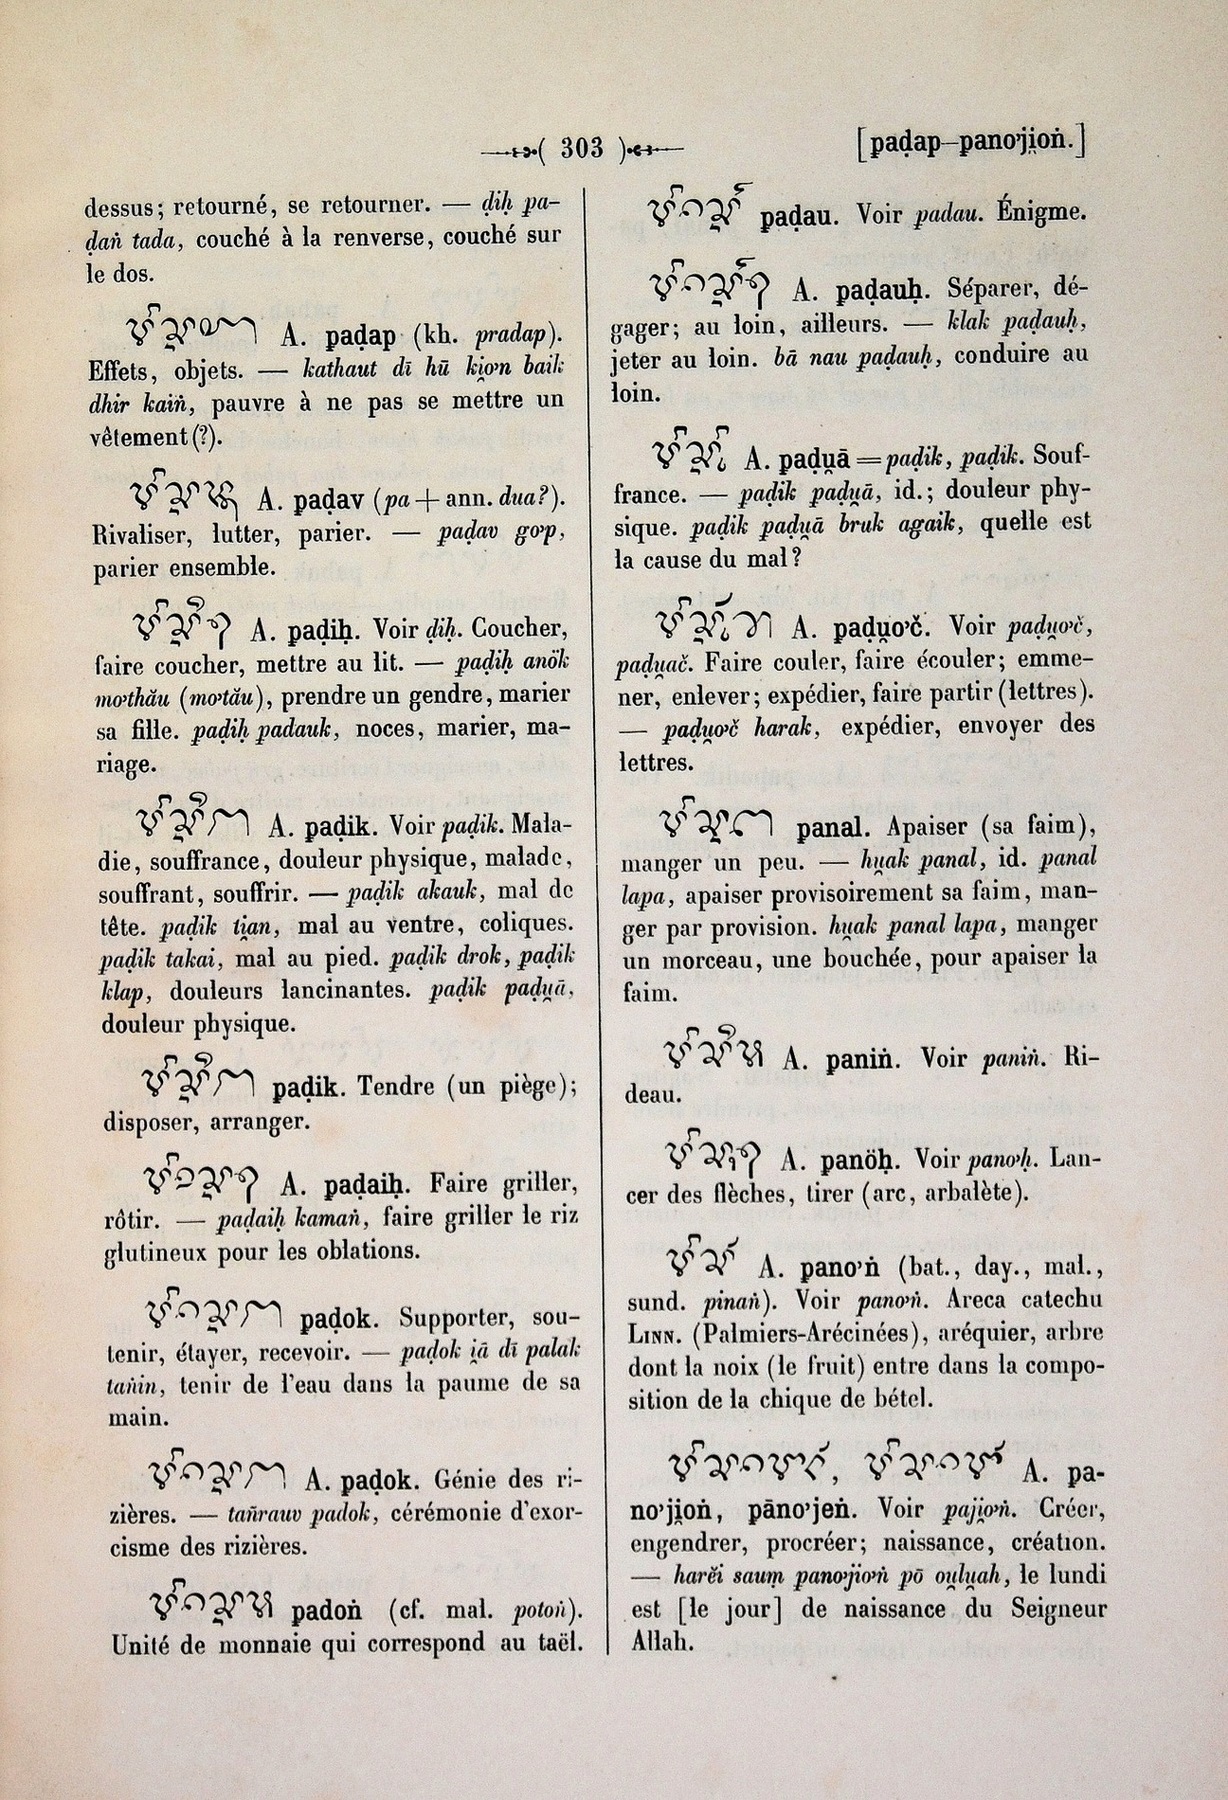 ( 303 )
[paḍap—panơji̯oṅ.]
dessus; retourné, se retourner. — ḍiḥ pa-
ḍaṅ tada, couché à la renverse, couché sur
le dos.
A. paḍap (kh. pradap).
Effets, objets. — kathaut dī hū ki̯ơn baik
dhir kaiñ, pauvre à ne pas se mettre un
vêtement (?).
A. paḍav (pa + ann. dua?).
Rivaliser, lutter, parier. — paḍav gơp,
parier ensemble.
A. paḍiḥ. Voir ḍiḥ. Coucher,
faire coucher, mettre au lit. — paḍiḥ anök
mơthău (mơtău), prendre un gendre, marier
sa fille. paḍiḥ padauk, noces, marier, ma-
riage.
A. paḍik. Voir paḍik. Mala-
die, souffrance, douleur physique, malade,
souffrant, souffrir. — paḍik akauk, mal de
tête. paḍik ti̯an, mal au ventre, coliques.
paḍik takai, mal au pied. paḍik drok, paḍik
klap, douleurs lancinantes. paḍik paḍu̯ā,
douleur physique.
paḍik. Tendre (un piège);
disposer, arranger.
A. paḍaiḥ. Faire griller,
rôtir. — paḍaiḥ kamaṅ, faire griller le riz
glutineux pour les oblations.
paḍok. Supporter, sou-
tenir, étayer, recevoir. — paḍok i̯ā dī palak
tañin, tenir de l'eau dans la paume de sa
main.
A. paḍok. Génie des ri-
zières. — tañrauv padok, cérémonie d'exor-
cisme des rizières.
padoṅ (cf. mal. potoṅ).
Unité de monnaie qui correspond au taël.
paḍau. Voir padau. Énigme.
A. paḍauḥ. Séparer, dé-
gager; au loin, ailleurs. — klak paḍauḥ,
jeter au loin. bā nau paḍauḥ, conduire au
loin.
A. paḍu̯ā = paḍik, paḍik. Souf-
france. — paḍik paḍu̯ā, id.; douleur phy-
sique. paḍik paḍu̯ā bruk agaik, quelle est
la cause du mal?
A. paḍu̯ơč. Voir paḍu̯ơč,
paḍu̯ač. Faire couler, faire écouler; emme-
ner, enlever; expédier, faire partir (lettres).
— paḍu̯ơč harak, expédier, envoyer des
lettres.
panal. Apaiser (sa faim),
manger un peu. — hu̯ak panal, id. panal
lapa, apaiser provisoirement sa faim, man-
ger par provision. hu̯ak panal lapa, manger
un morceau, une bouchée, pour apaiser la
faim.
A. paniṅ. Voir paniṅ. Ri-
deau.
A. panöḥ. Voir panơḥ. Lan-
cer des flèches, tirer (arc, arbalète).
A. panơṅ (bat., day., mal.,
sund. pinaṅ). Voir panơṅ. Areca catechu
LINN. (Palmiers-Arécinées), aréquier, arbre
dont la noix (le fruit) entre dans la compo-
sition de la chique de bétel.
A. pa-
nơji̯oṅ, pānơjeṅ. Voir paji̯ơṅ. Créer,
engendrer, procréer; naissance, création.
— harĕi sauṃ panơjiơṅ pō ou̯lu̯ah, le lundi
est [le jour] de naissance du Seigneur
Allah.